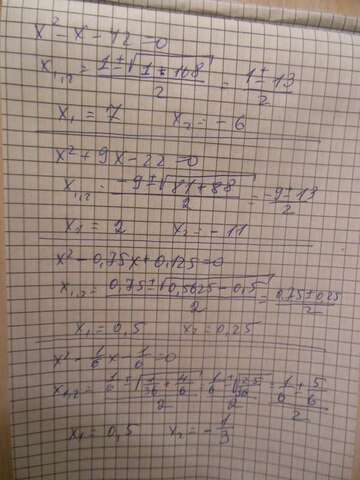 x² - x - 42 = 0
x₁,₂ = (1 ± √(1 + 168)) / 2 = (1 ± 13) / 2
x₁ = 7 x₂ = -6
x² + 9x - 22 = 0
x₁,₂ = (-9 ± √(81 + 88)) / 2 = (-9 ± 13) / 2
x₁ = 2 x₂ = -11
x² - 0,75x + 0,125 = 0
x₁,₂ = (0,75 ± √(0,5625 - 0,5)) / 2 = (0,75 ± 0,25) / 2
x₁ = 0,5 x₂ = 0,25
x² - 1/6 x - 1/6 = 0
x₁,₂ = (1/6 ± √(1/36 + 4/6)) / 2 = (1/6 ± √(25/36)) / 2 = (1/6 ± 5/6) / 2
x₁ = 0,5 x₂ = -1/3